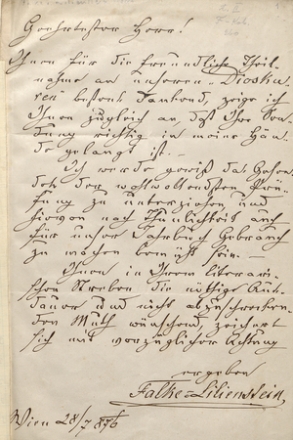 Geehrtester Herr!
Ihnen für die freundliche Theil-
nahme an unseren „Diosku-
ren" bestens dankend, zeige ich
Ihnen zugleich an, daß Ihre Sen-
dung richtig in meine Hän-
de gelangt ist. —
Ich werde gewiß das Gesen-
dete der wohlwollendsten Prü-
fung zu unterziehen und
hievon nach Thunlichkeit auch
für unser Jahrbuch Gebrauch
zu machen bemüht sein. —
Ihnen in Ihrem literari-
schen Streben die nöthige Aus-
dauer und nicht
den Muth wünschend, zeichnet
sich mit vorzüglicher Achtung
ergeben
Falke-Lilienstein,
Wien 28/7 876